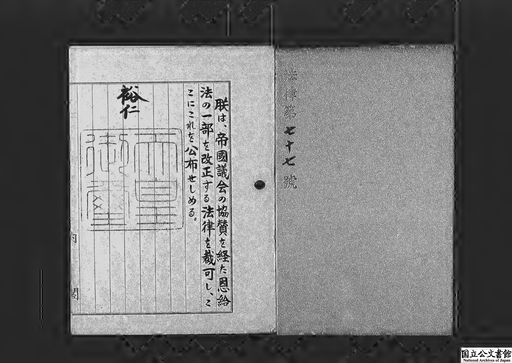 法律第七十七號
朕は、帝國議会の協賛を経た恩給
法の一部を改正する法律を裁可し、こ
こにこれを公布せしめる。
裕仁
天皇
御璽
内閣
国立公文書館
National Archives of Japan